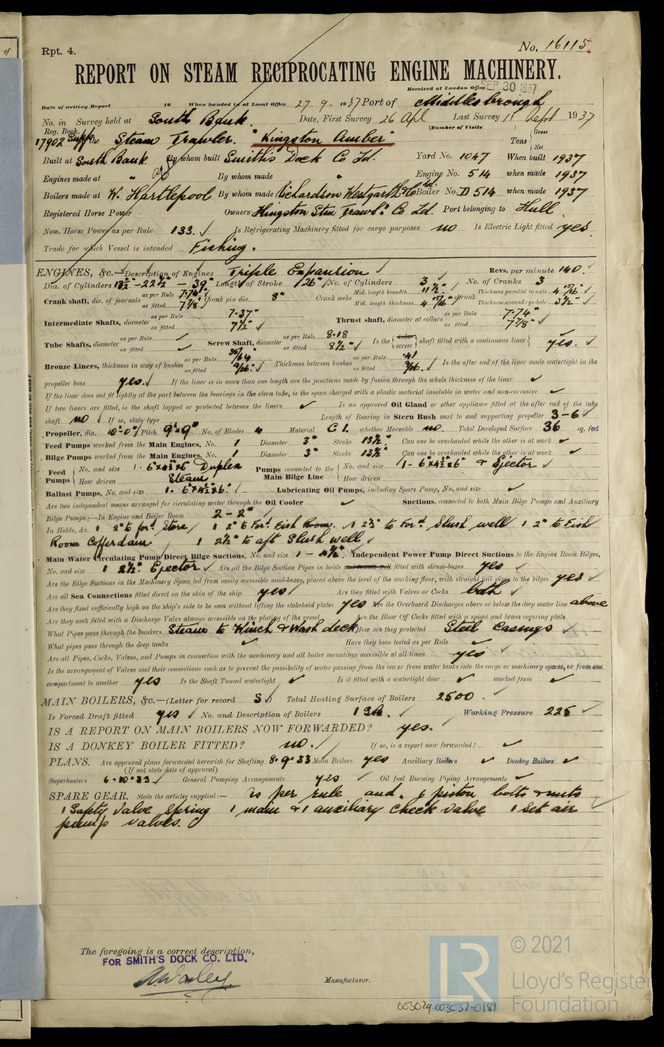 Rpt. 4.
No. 16115.
REPORT ON STEAM RECIPROCATING ENGINE MACHINERY.
Received at London Office SEP 30 1937
Date of writing Report 19 When handed in at Local Office 27-9-1937 Port of Middlesbrough
No. in Survey held at South Bank. Date, First Survey 26 Apl Last Survey 11 Sept 1937
Reg. Book. (Number of Visits
17902 Supp the Steam Trawler. "Kingston Amber" Tons Gross Net
Built at South Bank By whom built Smith's Dock Co Ld. Yard No. 1047 When built 1937
Engines made at Do By whom made Engine No. 514 when made 1937
Boilers made at W. Hartlepool By whom made Richardson Westgarth & Co Ld. Boiler No. D 514 when made 1937
Registered Horse Power Owners Kingston Stm Trawl. Co Ld. Port belonging to Hull.
Nom. Horse Power as per Rule 133. Is Refrigerating Machinery fitted for cargo purposes no Is Electric Light fitted yes.
Trade for which Vessel is intended Fishing.
ENGINES, &c. Description of Engines Triple Expansion Revs. per minute 140.
Dia. of Cylinders -39" Length of Stroke 26" No. of Cylinders 3 No. of Cranks 3
Crank shaft, dia. of journals as per Rule 7.74" as fitted 7⅞" Crank pin dia. 8" Crank webs Mid. length breadth 11½" Mid. length thickness 4 Thickness parallel to axis Thickness around eye-hole
Intermediate Shafts, diameter as per Rule 7.37" as fitted 7½" Thrust shaft, diameter at collars as per Rule 7.74" as fitted 7⅞"
Tube Shafts, diameter as per Rule as fitted Screw Shaft, diameter as per Rule 8.18 as fitted 8½" Is the screw shaft fitted with a continuous liner yes.
Bronze Liners, thickness in way of bushes as per Rule as fitted Thickness between bushes as per Rule .41 as fitted Is the after end of the liner made watertight in the
propeller boss yes. If the liner is in more than one length are the junctions made by fusion through the whole thickness of the liner
If the liner does not fit tightly at the part between the bearings in the stern tube, is the space charged with a plastic material insoluble in water and non-corrosive
If two liners are fitted, is the shaft lapped or protected between the liners Is an approved Oil Gland or other appliance fitted at the after end of the tube
shaft no If so, state type Length of Bearing in Stern Bush next to and supporting propeller 3-6
Propeller, dia. 10'-0" Pitch 9'-9" No. of Blades 4 Material C.I. whether Moveable no. Total Developed Surface 36 sq. feet
Feed Pumps worked from the Main Engines, No. 1 Diameter 3" Stroke 13½" Can one be overhauled while the other is at work
Bilge Pumps worked from the Main Engines, No. 1 Diameter 3" Stroke 13½" Can one be overhauled while the other is at work
Feed Pumps No. and size 1-6"x4½"x6" Duplex How driven Steam Pumps connected to the Main Bilge Line No. and size 1-6"x4½"x6" & Ejector How driven
Ballast Pumps, No. and size 1-6"x4½"x6" Lubricating Oil Pumps, including Spare Pump, No. and size
Are two independent means arranged for circulating water through the Oil Cooler Suctions, connected to both Main Bilge Pumps and Auxiliary
Bilge Pumps:—In Engine and Boiler Room 2-2"
In Holds, &c. 1 2" to for'd Store, 1 2" to For'd Fish Room. 1 2½" to For'd Slush well 1 2" to Fish
Room Cofferdam 1 2½" to aft Slush well
Main Water Circulating Pump Direct Bilge Suctions, No. and size 1-4½" Independent Power Pump Direct Suctions to the Engine Room Bilges,
No. and size 1 2½" Ejector Are all the Bilge Suction Pipes in holds fitted with strum-boxes yes
Are the Bilge Suctions in the Machinery Space led from easily accessible mud-boxes, placed above the level of the working floor, with straight tail pipes to the bilges yes
Are all Sea Connections fitted direct on the skin of the ship yes Are they fitted with Valves or Cocks both
Are they fixed sufficiently high on the ship's side to be seen without lifting the stokehold plates yes Are the Overboard Discharges above or below the deep water line above
Are they each fitted with a Discharge Valve always accessible on the plating of the vessel Are the Blow Off Cocks fitted with a spigot and brass covering plate
What Pipes pass through the bunkers Steam to Winch & Wash deck How are they protected Steel Casings
What pipes pass through the deep tanks Have they been tested as per Rule
Are all Pipes, Cocks, Valves, and Pumps in connection with the machinery and all boiler mountings accessible at all times yes
Is the arrangement of Valves and their connections such as to prevent the possibility of water passing from the sea or from water tanks into the cargo or machinery spaces, or from one
compartment to another yes Is the Shaft Tunnel watertight Is it fitted with a watertight door worked from
MAIN BOILERS, &c.—(Letter for record S) Total Heating Surface of Boilers 2500.
Is Forced Draft fitted yes No. and Description of Boilers Working Pressure 225
IS A REPORT ON MAIN BOILERS NOW FORWARDED? yes.
IS A DONKEY BOILER FITTED? no. If so, is a report now forwarded?
PLANS. Are approved plans forwarded herewith for Shafting 8.9.33 Main Boilers yes Auxiliary Boilers Donkey Boilers
(If not state date of approval)
Superheaters 6.10.33 General Pumping Arrangements yes Oil fuel Burning Piping Arrangements
SPARE GEAR. State the articles supplied:— as per rule and, 6 piston bolts & nuts
1 Safety Valve Spring 1 main & 1 auxiliary check valve 1 set air
pump valves.
The foregoing is a correct description,
FOR SMITH'S DOCK CO. LTD.
Manufacturer.
© 2021
LR Lloyd's Register
Foundation
003029-003037-0181